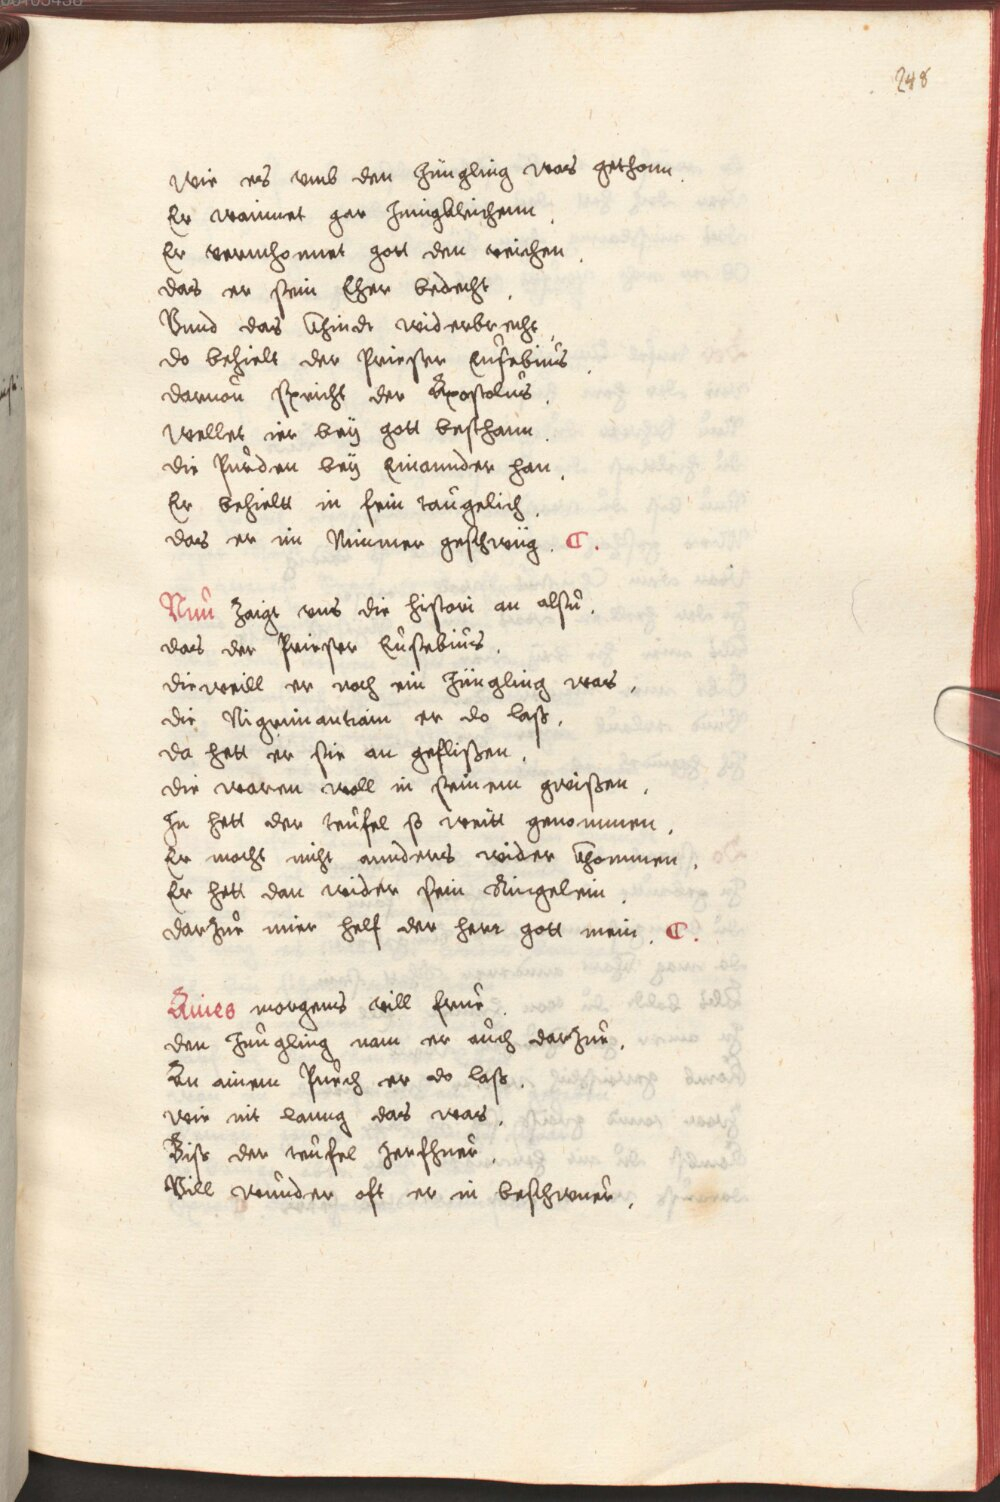 248
Wie es vmb den Jüngling was gethonn.
Er wainnet gar Innigkleichenn.
Er vermhonnet gott den reichen.
das er sein Eher bedecht.
Vnnd das khindt widerbrecht.
do behielt der Priester Eusebius.
darnon spricht der Apostolus.
Wellet ier beÿ gott besthann.
die Purden beÿ Einannder han.
Er behieltt in sein taugelich.
das er im Nimmer geschwiig. C.
Nun Zaigt vns die histori an alsu.
das der Priester Eusebius.
dieweill er noch ein Jüngling was.
die Nigrimantiam er do laß.
da hett er sie an geflißen.
die waren woll in seinem gwißen.
In hett der teufel ß weitt genommen.
Er mocht nicht annders wider khommen.
Er hett dan wider sein Ringelein.
darZue mier helf der herr gott mein. C.
Aines morgens vill frue.
den Jüngling nam er auch darZue.
An ainem Puech er do laß.
wie nit lanng das was.
Biss der teufel herfhuer.
Vill wunder oft er in beschwuer.